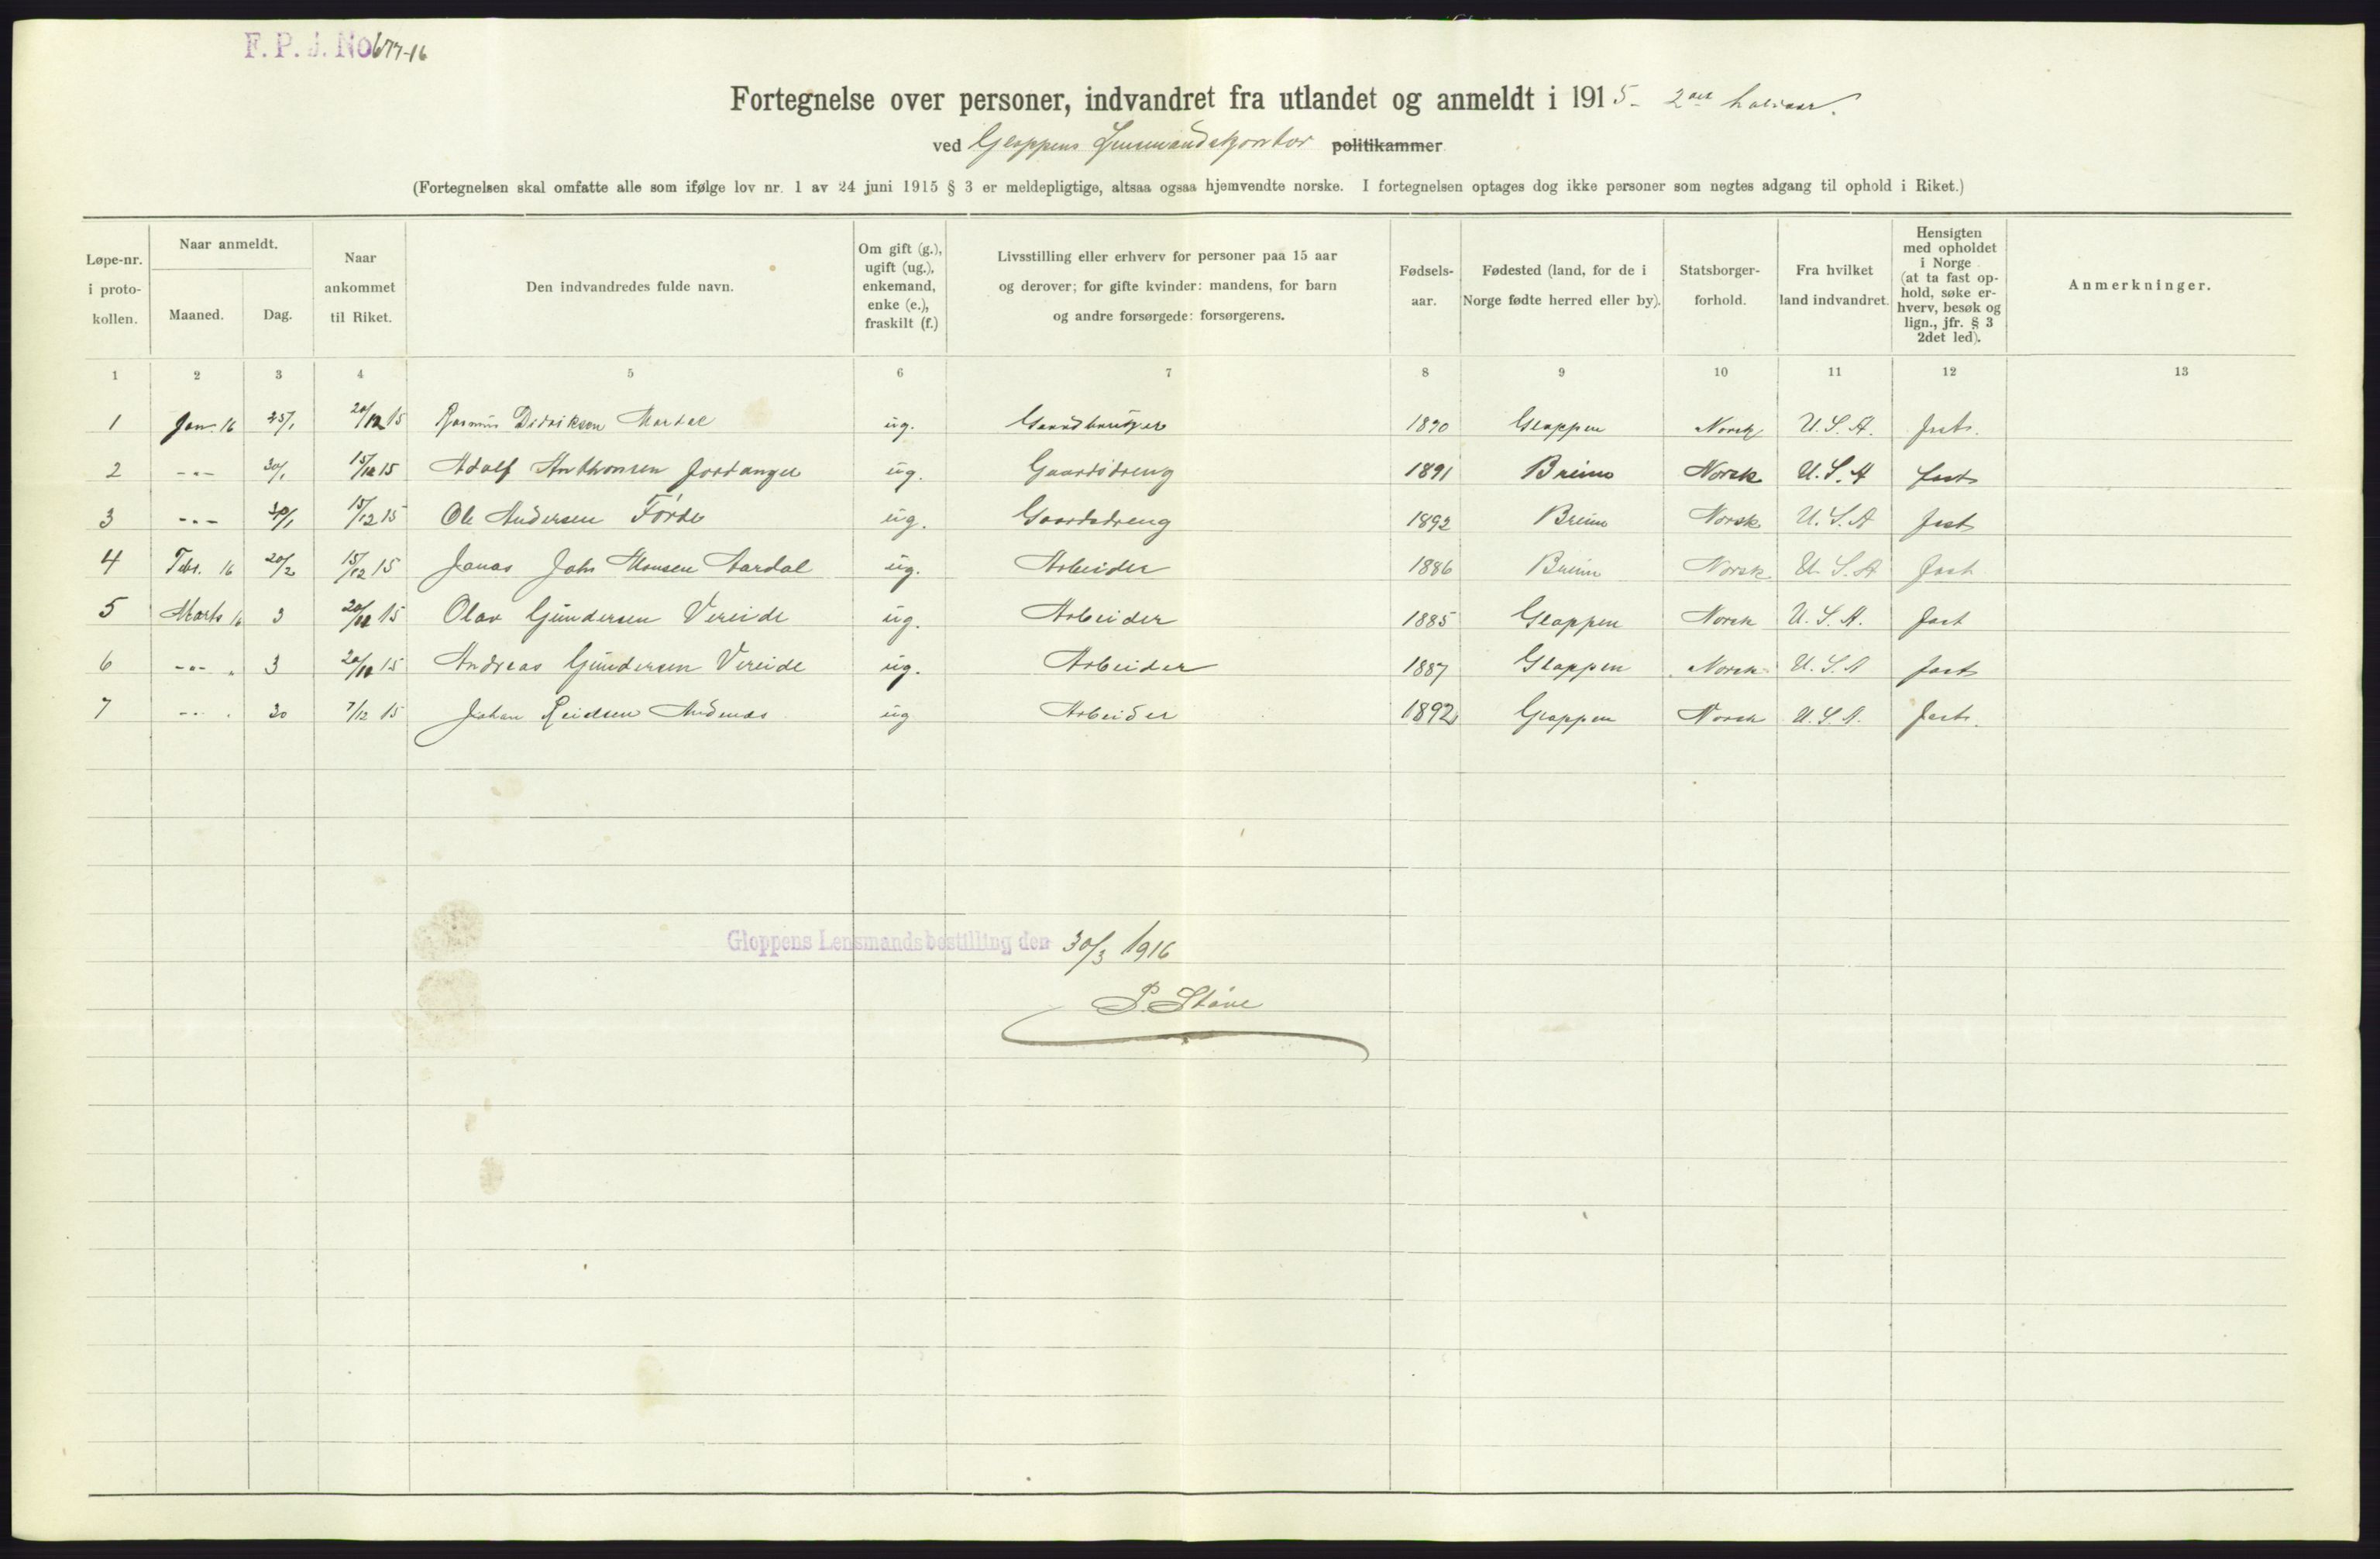 F. P. J. No 677-16
Fortegnelse over personer, indvandret fra utlandet og anmeldt i 1915 - 2det halvaar.
ved Gloppens Lensmandskontor politikammer
(Fortegnelsen skal omfatte alle som ifølge lov nr. 1 av 24 juni 1915 § 3 er meldepligtige, altsaa ogsaa hjemvendte norske. I fortegnelsen optages dog ikke personer som negtes adgang til ophold i Riket.)
Løpe-nr. i proto-kollen. Naar anmeldt. Maaned. Dag. Naar ankommet til Riket. Den indvandredes fulde navn. Om gift (g.), ugift (ug.), enkemand, enke (e.), fraskilt (f.) Livsstilling eller erhverv for personer paa 15 aar og derover; for gifte kvinder: mandens, for barn og andre forsørgede: forsørgerens. Fødsels-aar. Fødested (land, for de i Norge fødte herred eller by). Statsborger-forhold. Fra hvilket land indvandret. Hensigten med opholdet i Norge (at ta fast op-hold, søke er-hverv, besøk og lign., jfr. § 3 2det led). Anmerkninger.
1 2 3 4 5 6 7 8 9 10 11 12 13
1 Jan. 16 25/1 20/12 15 Rasmus Didriksen Mardal ug. Gaardbruger 1890 Gloppen Norsk U.S.A. fast.
2 -"- 30/1 15/12 15 Adolf Anthonsen Jordanger ug. Gaardsdreng 1891 Breim Norsk U.S.A fast
3 -"- 30/1 15/12 15 Ole Andersen Förde ug. Gaardsdreng 1892 Breim Norsk U.S.A fast
4 Febr. 16 20/2 15/12 15 Jonas Johs Monsen Aardal ug. Arbeider 1886 Breim Norsk U.S.A fast
5 Marts 16 3 20/12 15 Olav Gundersen Vereide ug. Arbeider 1885 Gloppen Norsk U.S.A. fast
6 -"- " 3 20/10 15 Andreas Gundersen Vereide ug. Arbeider 1887 Gloppen Norsk U.S.A fast
7 -"- " 30 7/12 15 Johan Reidsen Andenæs ug Arbeider 1892 Gloppen Norsk U.S.A. fast.
Gloppens Lensmandsbestilling den 30/3 1916
P. Støve